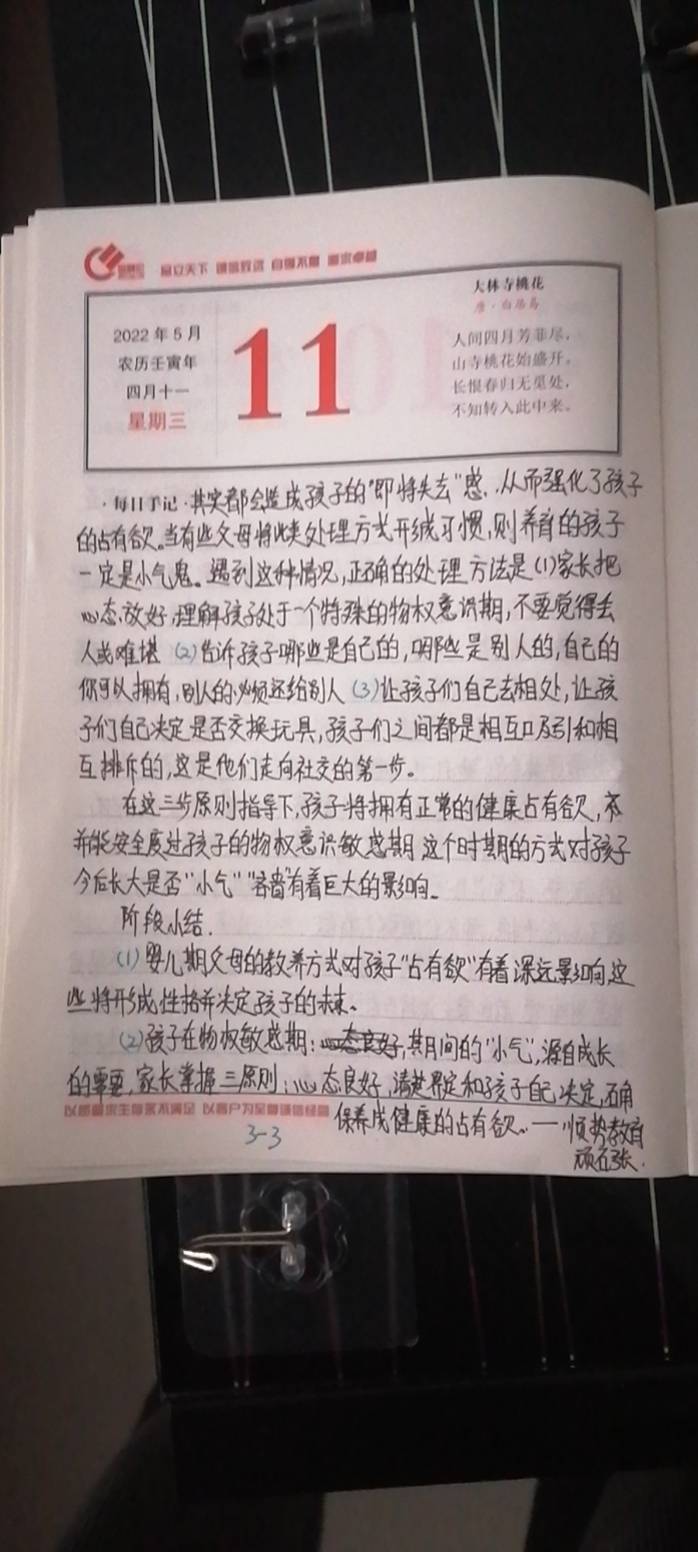 2022年5月
农历壬寅年
四月十一
星期三
11
大林寺桃花
唐·白居易
人间四月芳菲尽，
山寺桃花始盛开。
长恨春归无觅处，
不知转入此中来。
·每日手记·其实都会造成孩子的"即将失去"感，从而强化了孩子
的占有欲。当有些父母将此类处理方式形成习惯,则养育的孩子
一定是小气鬼。遇到这种情况,正确的处理方法是(1)家长把
心态放好,理解孩子处于一个特殊的物权意识期,不要觉得丢
人或难堪 (2)告诉孩子哪些是自己的,哪些是别人的,自己的
你可以拥有,别人的必须还给别人(3)让孩子们自己去相处,让孩
子们自己决定是否交换玩具,孩子们之间都是相互吸引和相
互排斥的,这是他们走向社交的第一步。
在这三步原则指导下,孩子将拥有正常的健康占有欲,
并能安全度过孩子的物权意识敏感期 这个时期的方式对孩子
今后长大是否"小气""吝啬"有着巨大的影响。
阶段小结.
(1)婴儿期父母的教养方式对孩子"占有欲"有着深远影响,这
些将形成性格并决定孩子的未来。
(2)孩子在物权敏感期:心态良好,其期间的"小气",源自成长
的需要,家长掌握三原则:心态良好,清楚界定和孩子自己决定,确
保养成健康的占有欲。—顺势教育
顽石张.
3-3